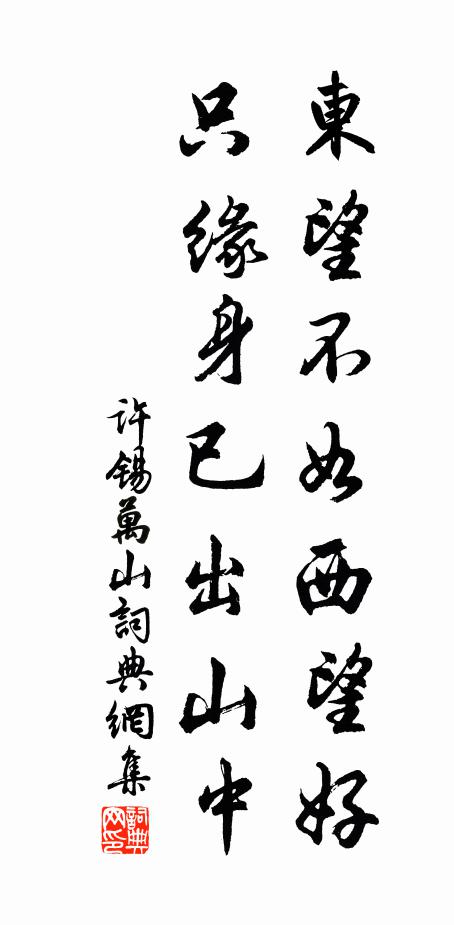 東望不如西望好
只緣身已出山中
許錫萬山詞典網集
詞典網印